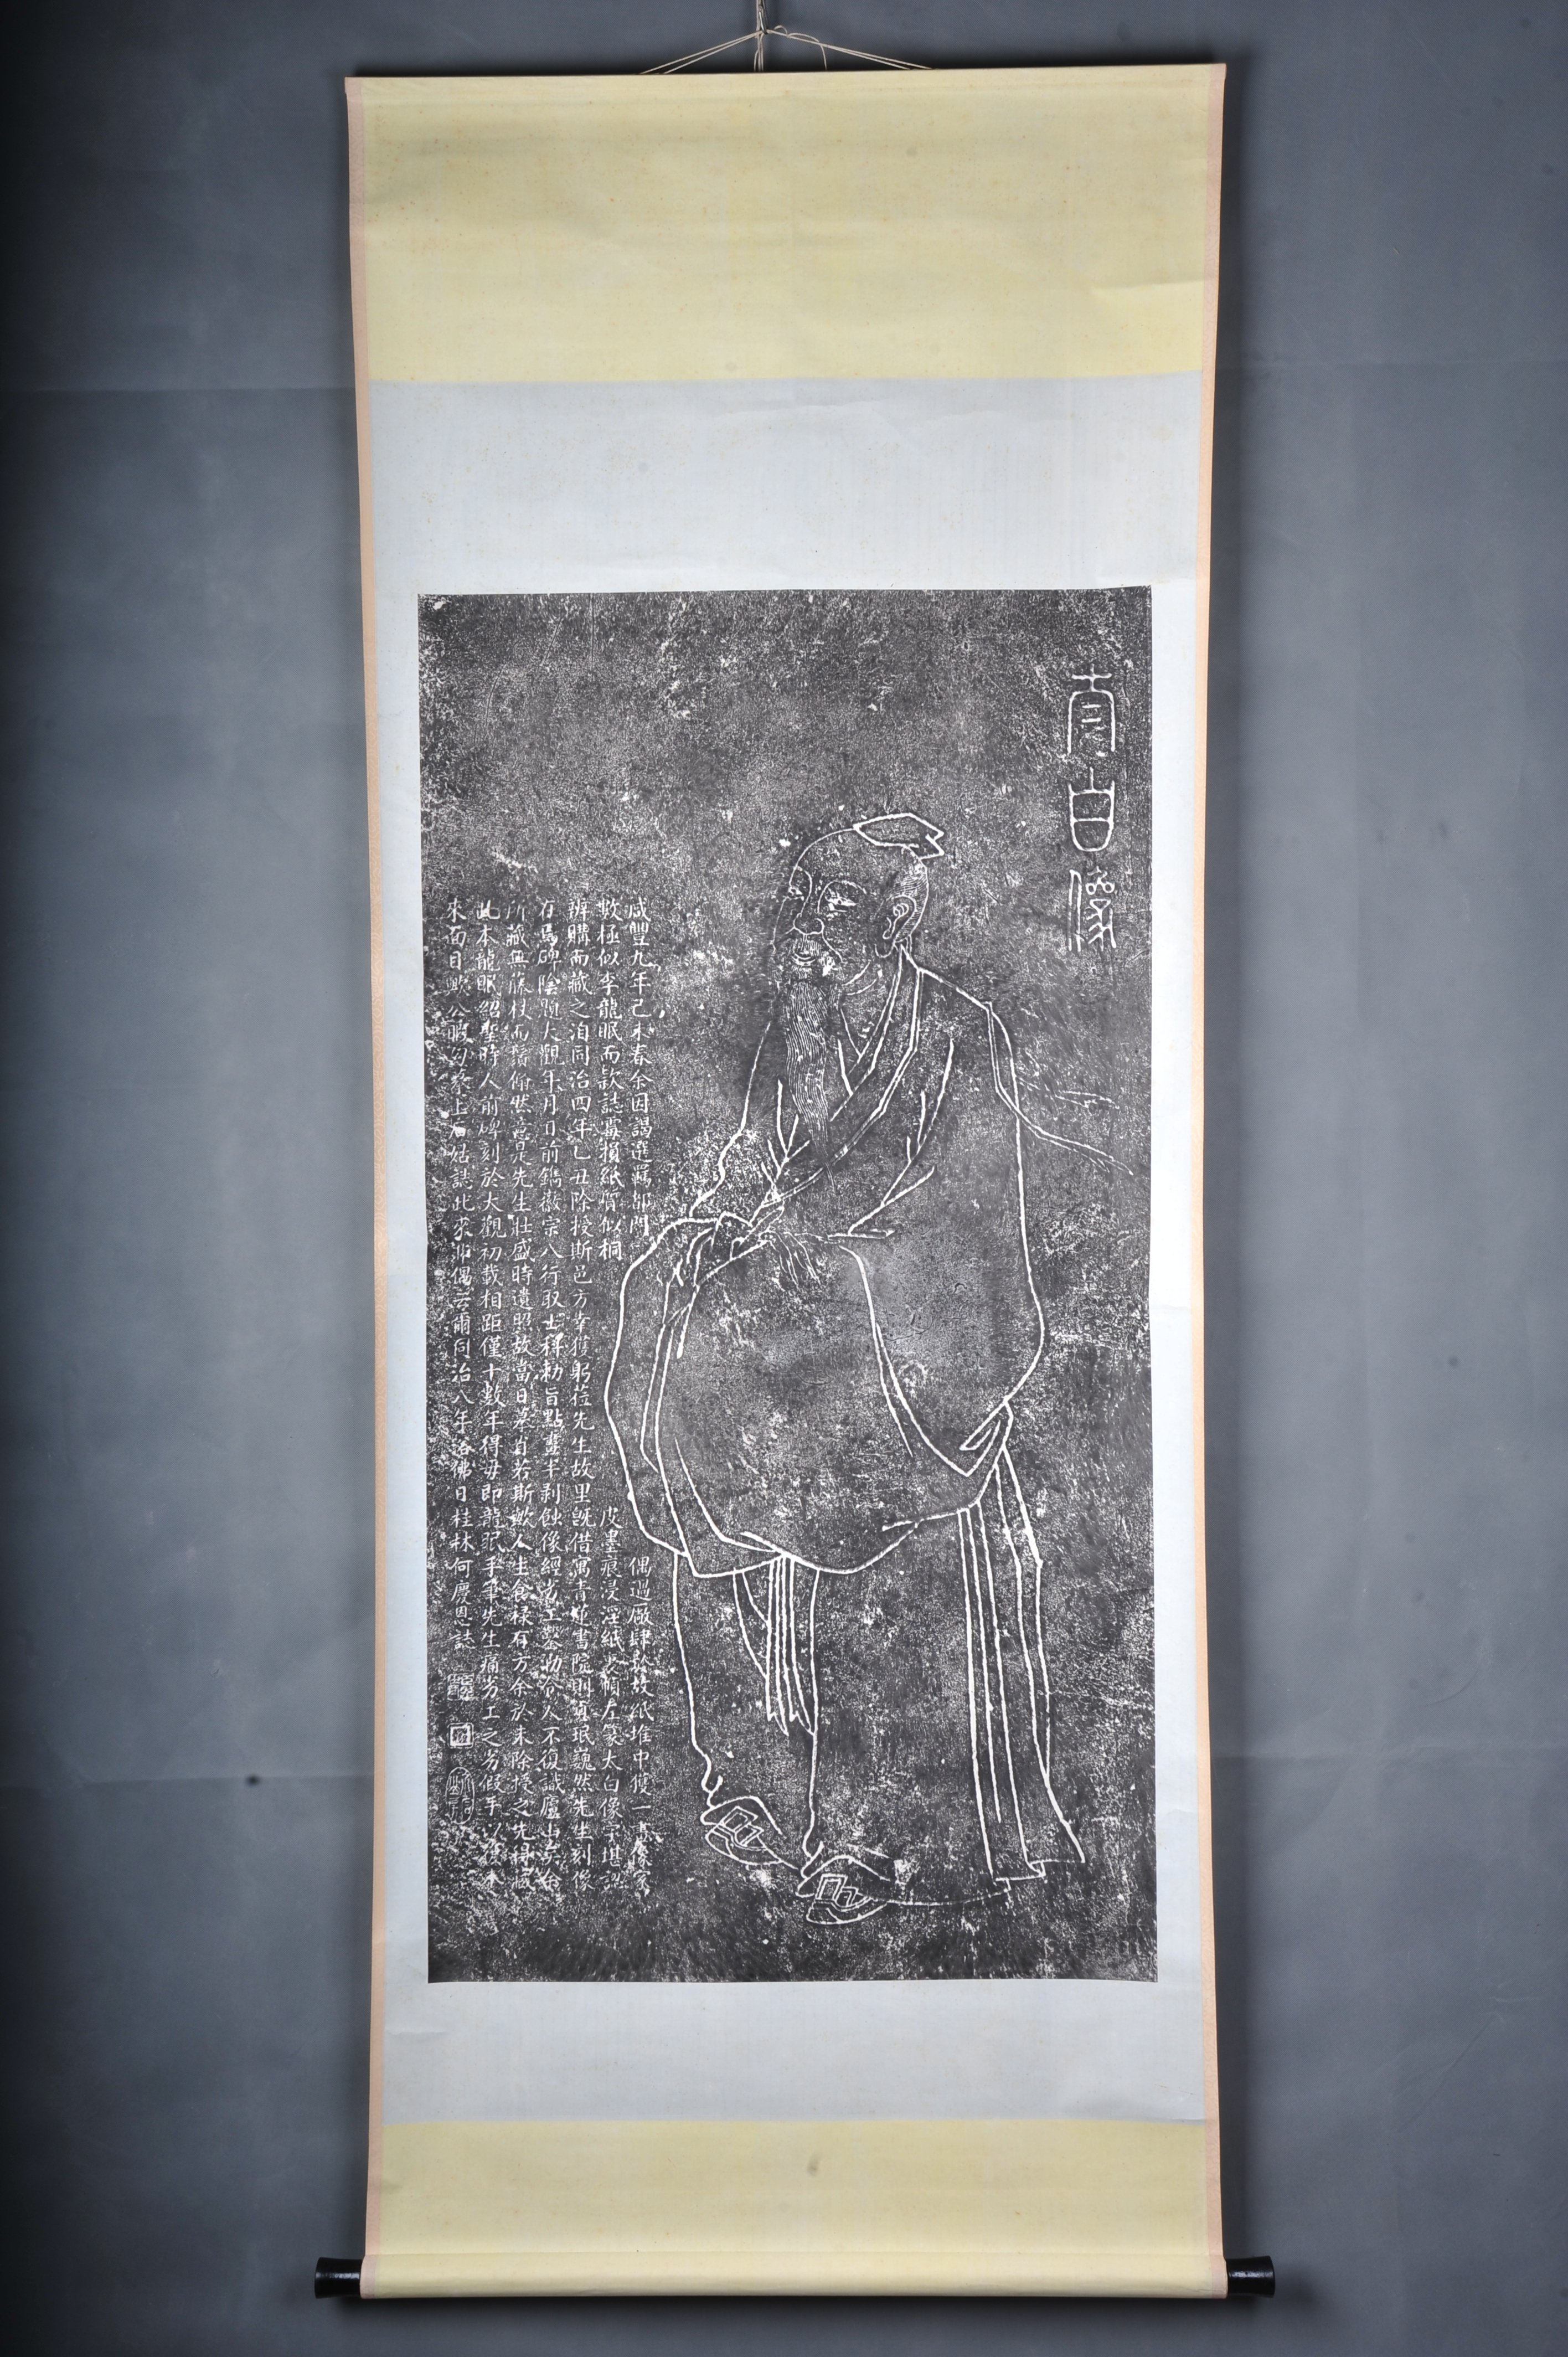 真白像
咸豐九年己未春余因謁選羈都門偶過廠肆於故紙堆中獲一像字
數極似李龍眠而款誌霉損紙質似桐皮墨痕浸淫紙幀左篆太白像字堪認
辦購而藏之洎同治四年乙丑除授斯邑方幸獲躬蒞先生故里旣借寓青蓮書院則貞珉巍然先生刻像
在焉碑陰題大觀年月日前鐫徽宗八行取士科勅旨點畫半剥蝕像經劣工鑿泐令人不復識廬山矣余
所藏無藤杖而鬚飄然當是先生壯盛時遺照故當日摹肖若斯歟人生食祿有方余於未除授之先得藏
此本龍眠紹聖時人前碑刻於大觀初載相距僅十數年得毋即龍眠手筆先生痛劣工之劣假手以復本
來面目歟公暇勾摹上石姑誌此求非偶云爾同治八年浴佛日桂林何慶恩誌